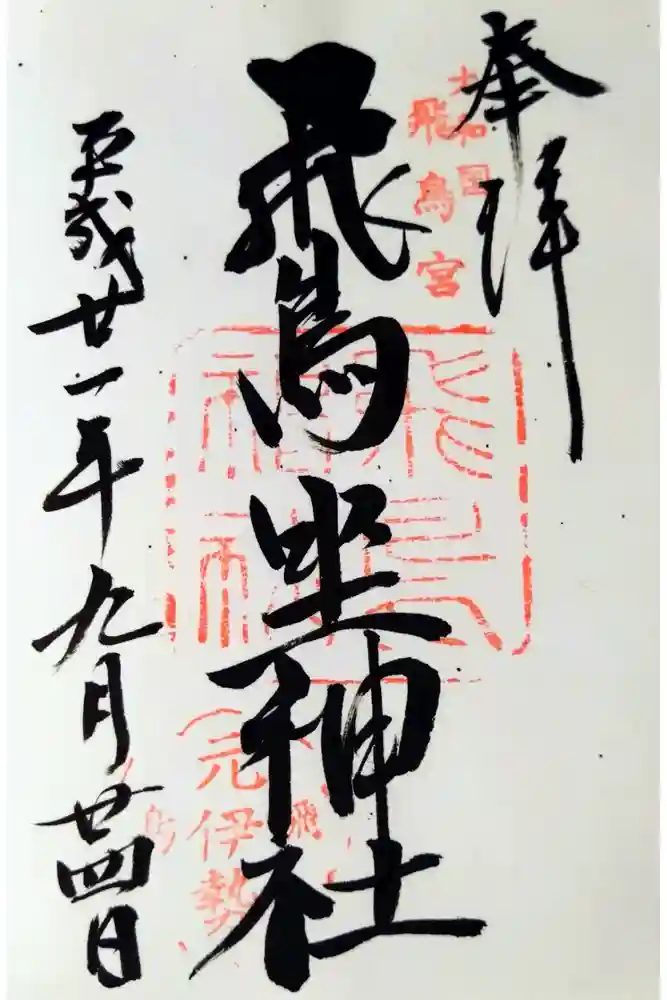 奉拝
大和国
飛鳥宮
飛鳥坐神社
飛鳥
神社
元伊勢
平成廿一年九月廿四日